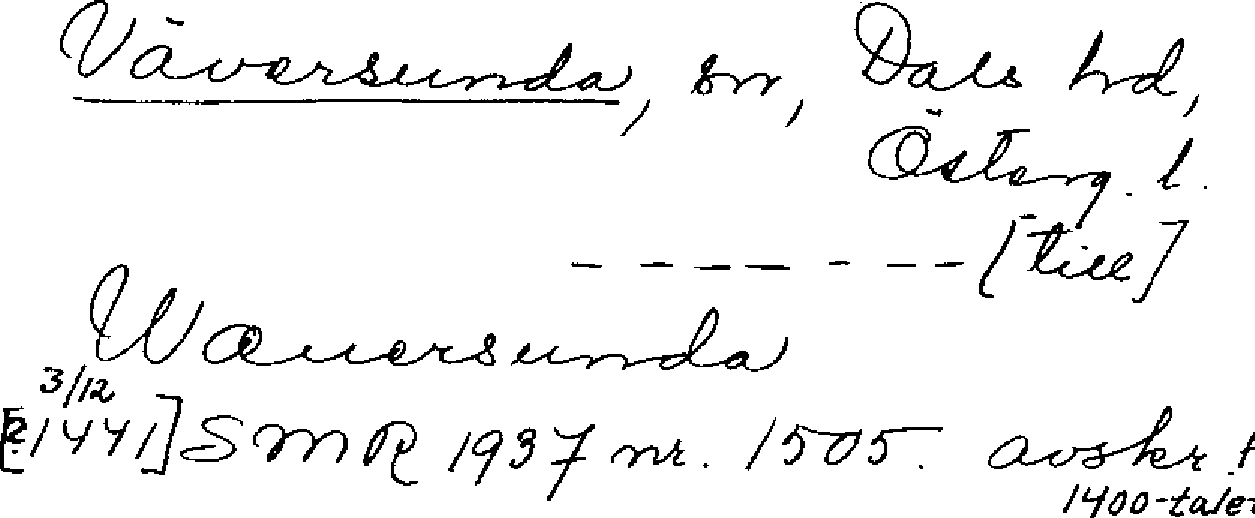 Väversunda, sn, Dals hd,
Österg. l.
– – – – – – – [till]
Wæuersunda
3/12
[?1441] SMR 1937 nr. 1505. avskr. f
1400-talet